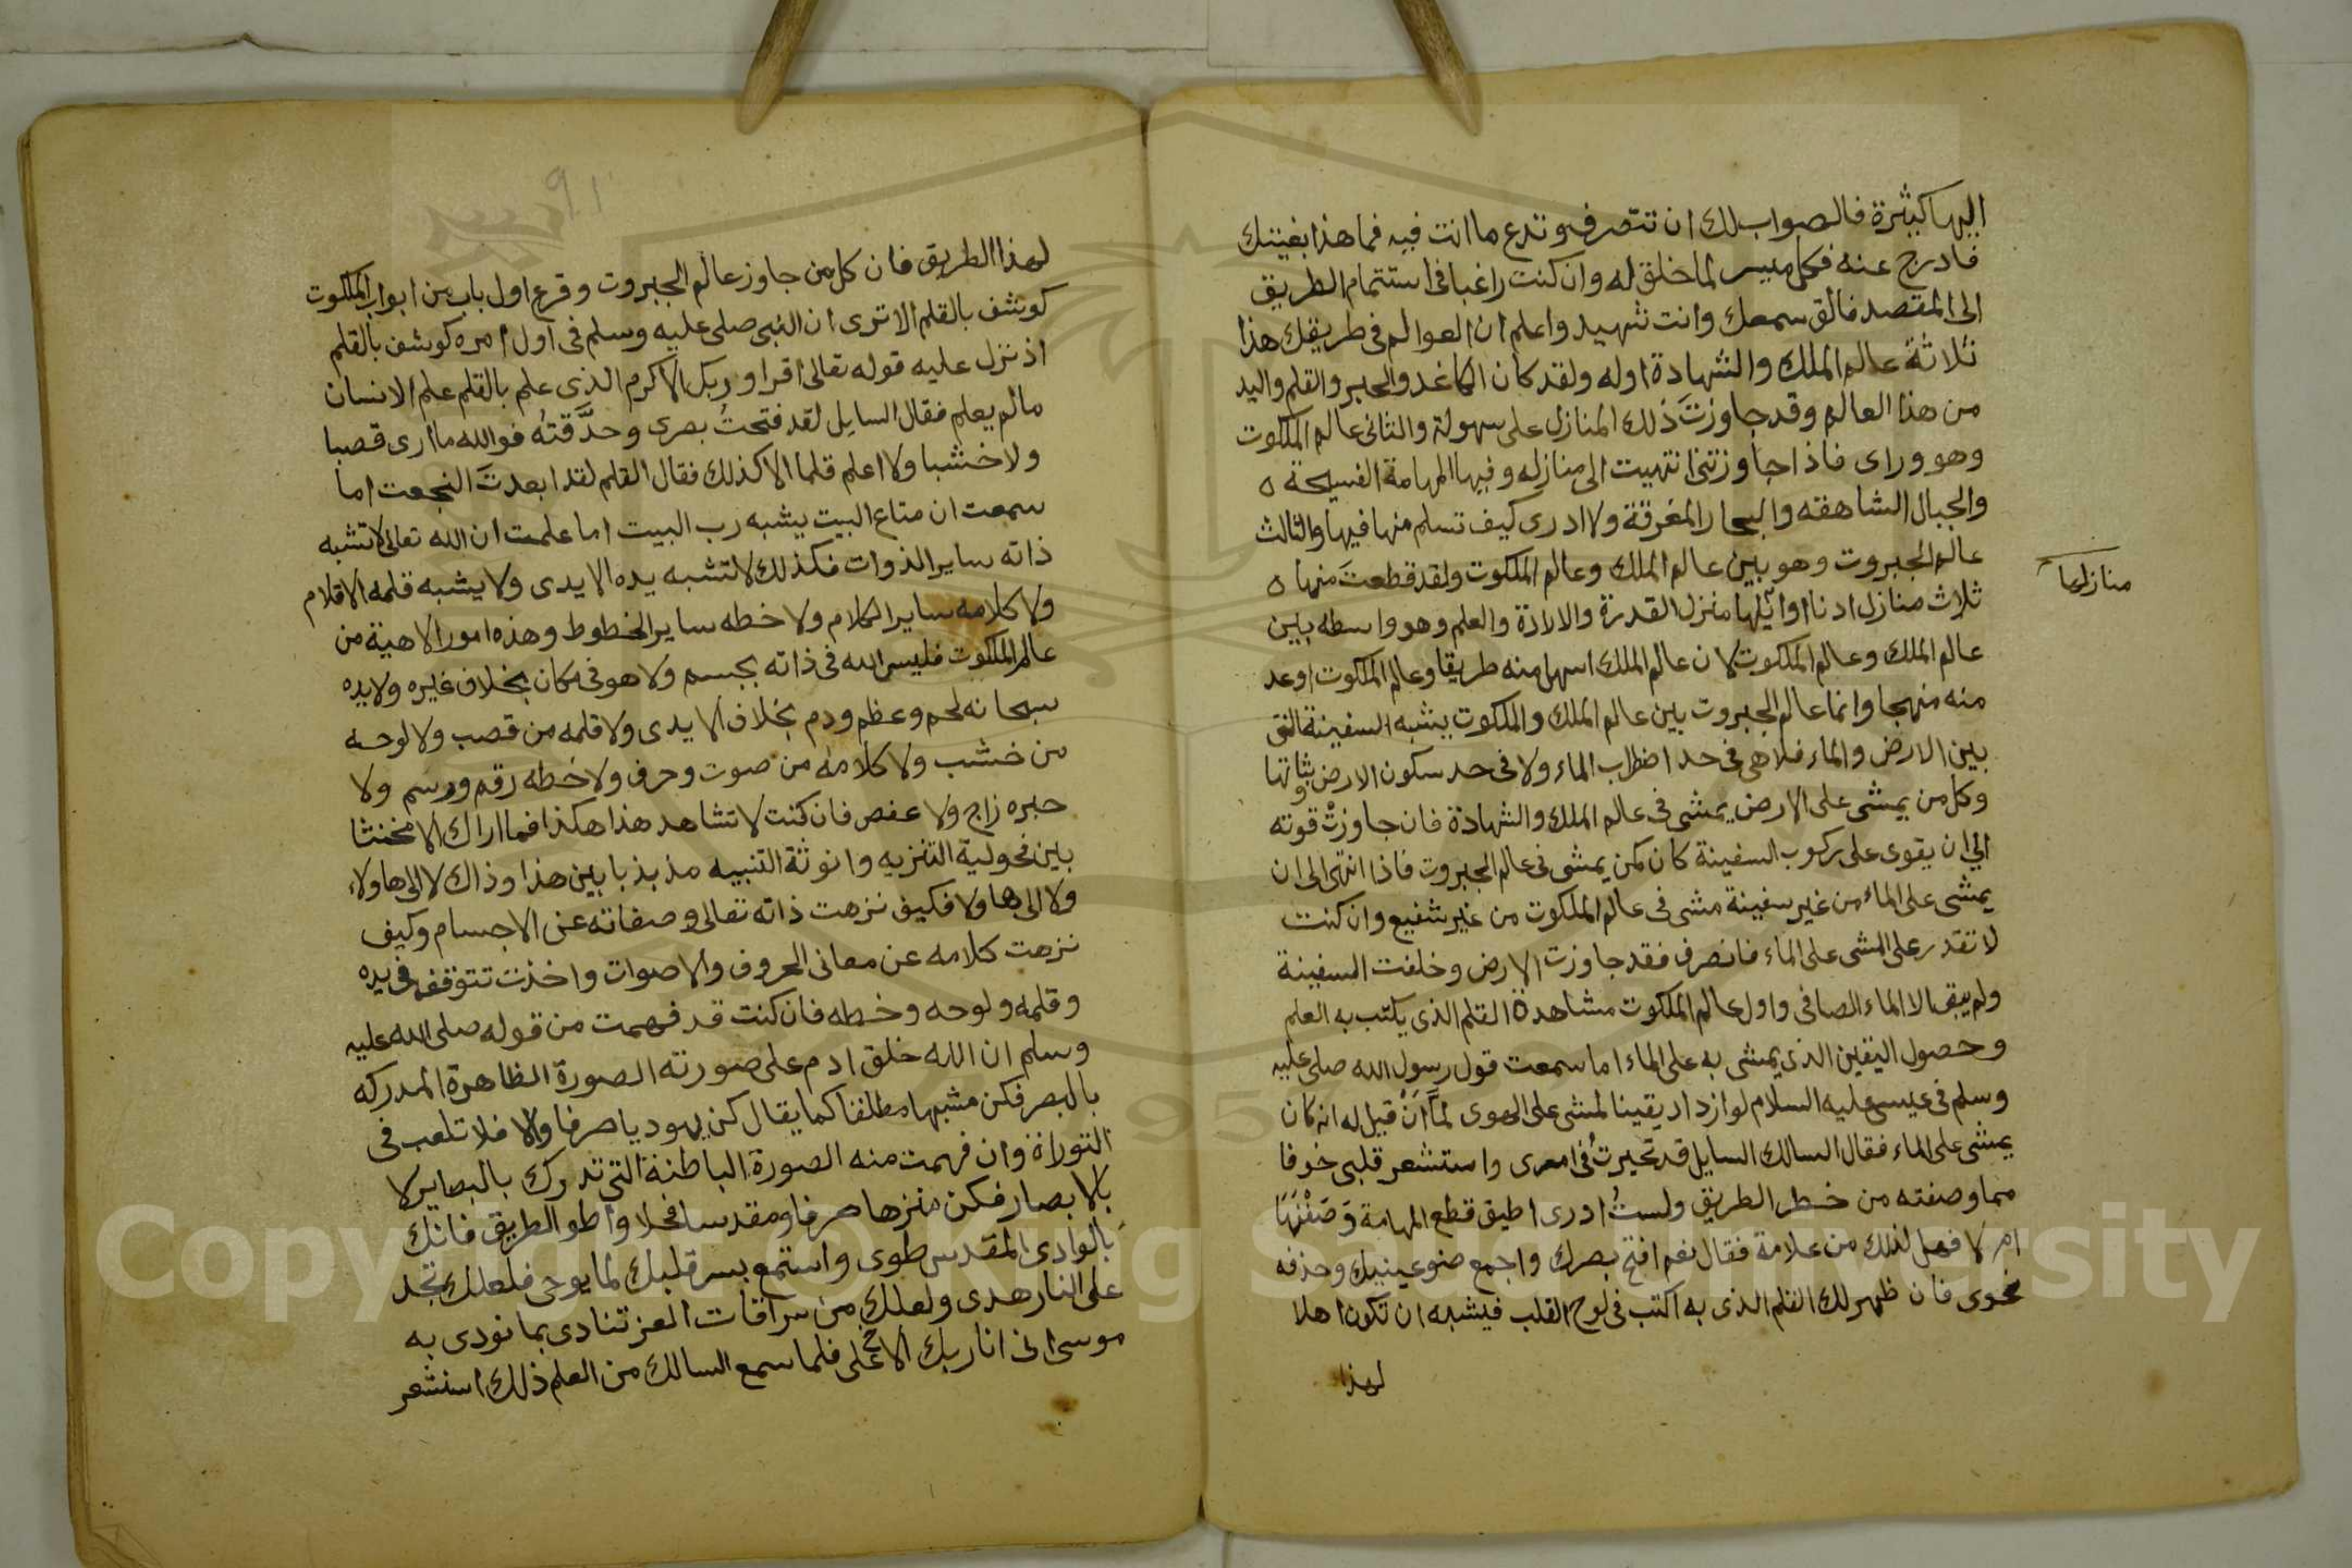 اليها كثيرة فالصواب لك ان تنصرف وتدع ما انت فيه فما هذا بغيتك
فادرج عنه فكل ميسر لما خلق له وان كنت راغبا فى استتمام الطريق
الى المقصد فالق سمعك وانت شهيد واعلم ان العوالم فى طريقك هذا
ثلاثة عالم الملك والشهادة اوله ولقد كان الكاغد والحبر والقلم واليد
من هذا العالم وقد جاوزتَ ذلك المنازل على سهولة والثانى عالم الملكوت
وهو وراى فاذا جاوزتنى انتهيت الى منازله وفيها المهامة الفسيحة ٥
والجبال الشاهقه والبحار المغرقة ولا ادرى كيف تسلم منها فيها والثالث
عالم الجبروت وهو بين عالم الملك وعالم الملكوت ولقد قطعتَ منها ٥
منازلها
ثلاث منازل ادنا اوائلها منزل القدرة والارادة والعلم وهو واسطه بين
عالم الملك وعالم الملكوت لان عالم الملك اسهل منه طريقا وعالم الملكوت اوعد
منه منهجا وانما عالم الجبروت بين عالم الملك والملكوت يشبه السفينة التى
بين الارض والماء فلا هى فى حد اضطراب الماء ولا فى حد سكون الارض وثباتها
وكل من يمشى على الارض يمشى فى عالم الملك والشهادة فان جاوزتْ قوته
الى ان يقوى على ركوب السفينة كان كمن يمشى فى عالم الجبروت فاذا انتهى الى ان
يمشى على الماء من غير سفينة مشى فى عالم الملكوت من غير شفيع وان كنت
لا تقدر على المشى على الماء فانصرف فقد جاوزت الارض وخلفت السفينة
ولم يبق الا الماء الصافى واول عالم الملكوت مشاهدة القلم الذى يكتب به العلم
وحصول اليقين الذى يمشى به على الماء اما سمعت قول رسول الله صلى عليه
وسلم فى عيسى عليه السلام لو ازداد يقينا لمشى على الهوى لمَّا اَنْ قيل له انه كان
يمشى على الماء فقال السالك السايل قد تحيرتُ فى امرى واستشعر قلبى خوفا
مما وصفته من خطر الطريق ولستُ ادرى اطيق قطع المهامة وَصَفْتَهَا
ام لا فهل لذلك من علامة فقال نعم افتح بصرك واجمع ضوء عينيك وحذفه
نحوى فان ظهر لك القلم الذى به اكتب فى لوح القلب فيشبه ان تكون اهلا
لهذا
٩١
لهذا الطريق فان كل من جاوز عالم الجبروت وقرع اول باب من ابواب الملكوت
كوشف بالقلم الا ترى ان النبى صلى عليه وسلم فى اول امره كوشف بالقلم
اذ نزل عليه قوله تعالى اقرا وربك الاكرم الذى علم بالقلم علم الانسان
مالم يعلم فقال السايل لقد فتحتُ بصرى وحدَّقتُه فوالله ما ارى قصبا
ولا خشبا ولا اعلم قلما الا كذلك فقال القلم لقد ابعدتَ النجعت اما
سمعت ان متاع البيت يشبه رب البيت اما علمت ان الله تعالى لا تشبه
ذاته ساير الذوات فكذلك لا تشبه يده الايدى ولا يشبه قلمه الاقلام
ولا كلامه ساير الكلام ولا خطه ساير الخطوط وهذه امور الاهية من
عالم الملكوت فليس الله فى ذاته بجسم ولا هو فى مكان بخلاف غيره ولا يده
سبحانه لحم وعظم ودم بخلاف الايدى ولا قلمه من قصب ولا لوحه
من خشب ولا كلامه من صوت وحرف ولا خطه رقم ورسم ولا
حبره زاج ولا عفص فان كنت لا تشاهد هذا هكذا فما اراك الا مخنثا
بين فحولية التنزيه وانوثة التنبيه مذبذبا بين هذا وذاك لا الى هاولاء
ولا الى هاولا فكيف نزهت ذاته تعالى وصفاته عن الاجسام وكيف
نزهت كلامه عن معانى الحروف والاصوات واخذت تتوقف فى يده
وقلمه ولوحه وخطه فان كنت قد فهمت من قوله صلى الله عليه
وسلم ان الله خلق ادم على صورته الصورة الظاهرة المدركه
بالبصر فكن مشبها مطلقا كما يقال كن يهوديا صرفا والا فلا تلعب فى
التوراة وان فهمت منه الصورة الباطنة التى تدرك بالبصاير لا
بالابصار فكن منزها صرفا ومقدسا فحلا واطو الطريق فانك
بالوادى المقدس طوى واستمع بسر قلبك لما يوحى فلعلك تجد
على النار هدى ولعلك من سرادقات العز تنادى بما نودى به
موسى انى انا ربك الاعلى فلما سمع السالك من العلم ذلك استشعر